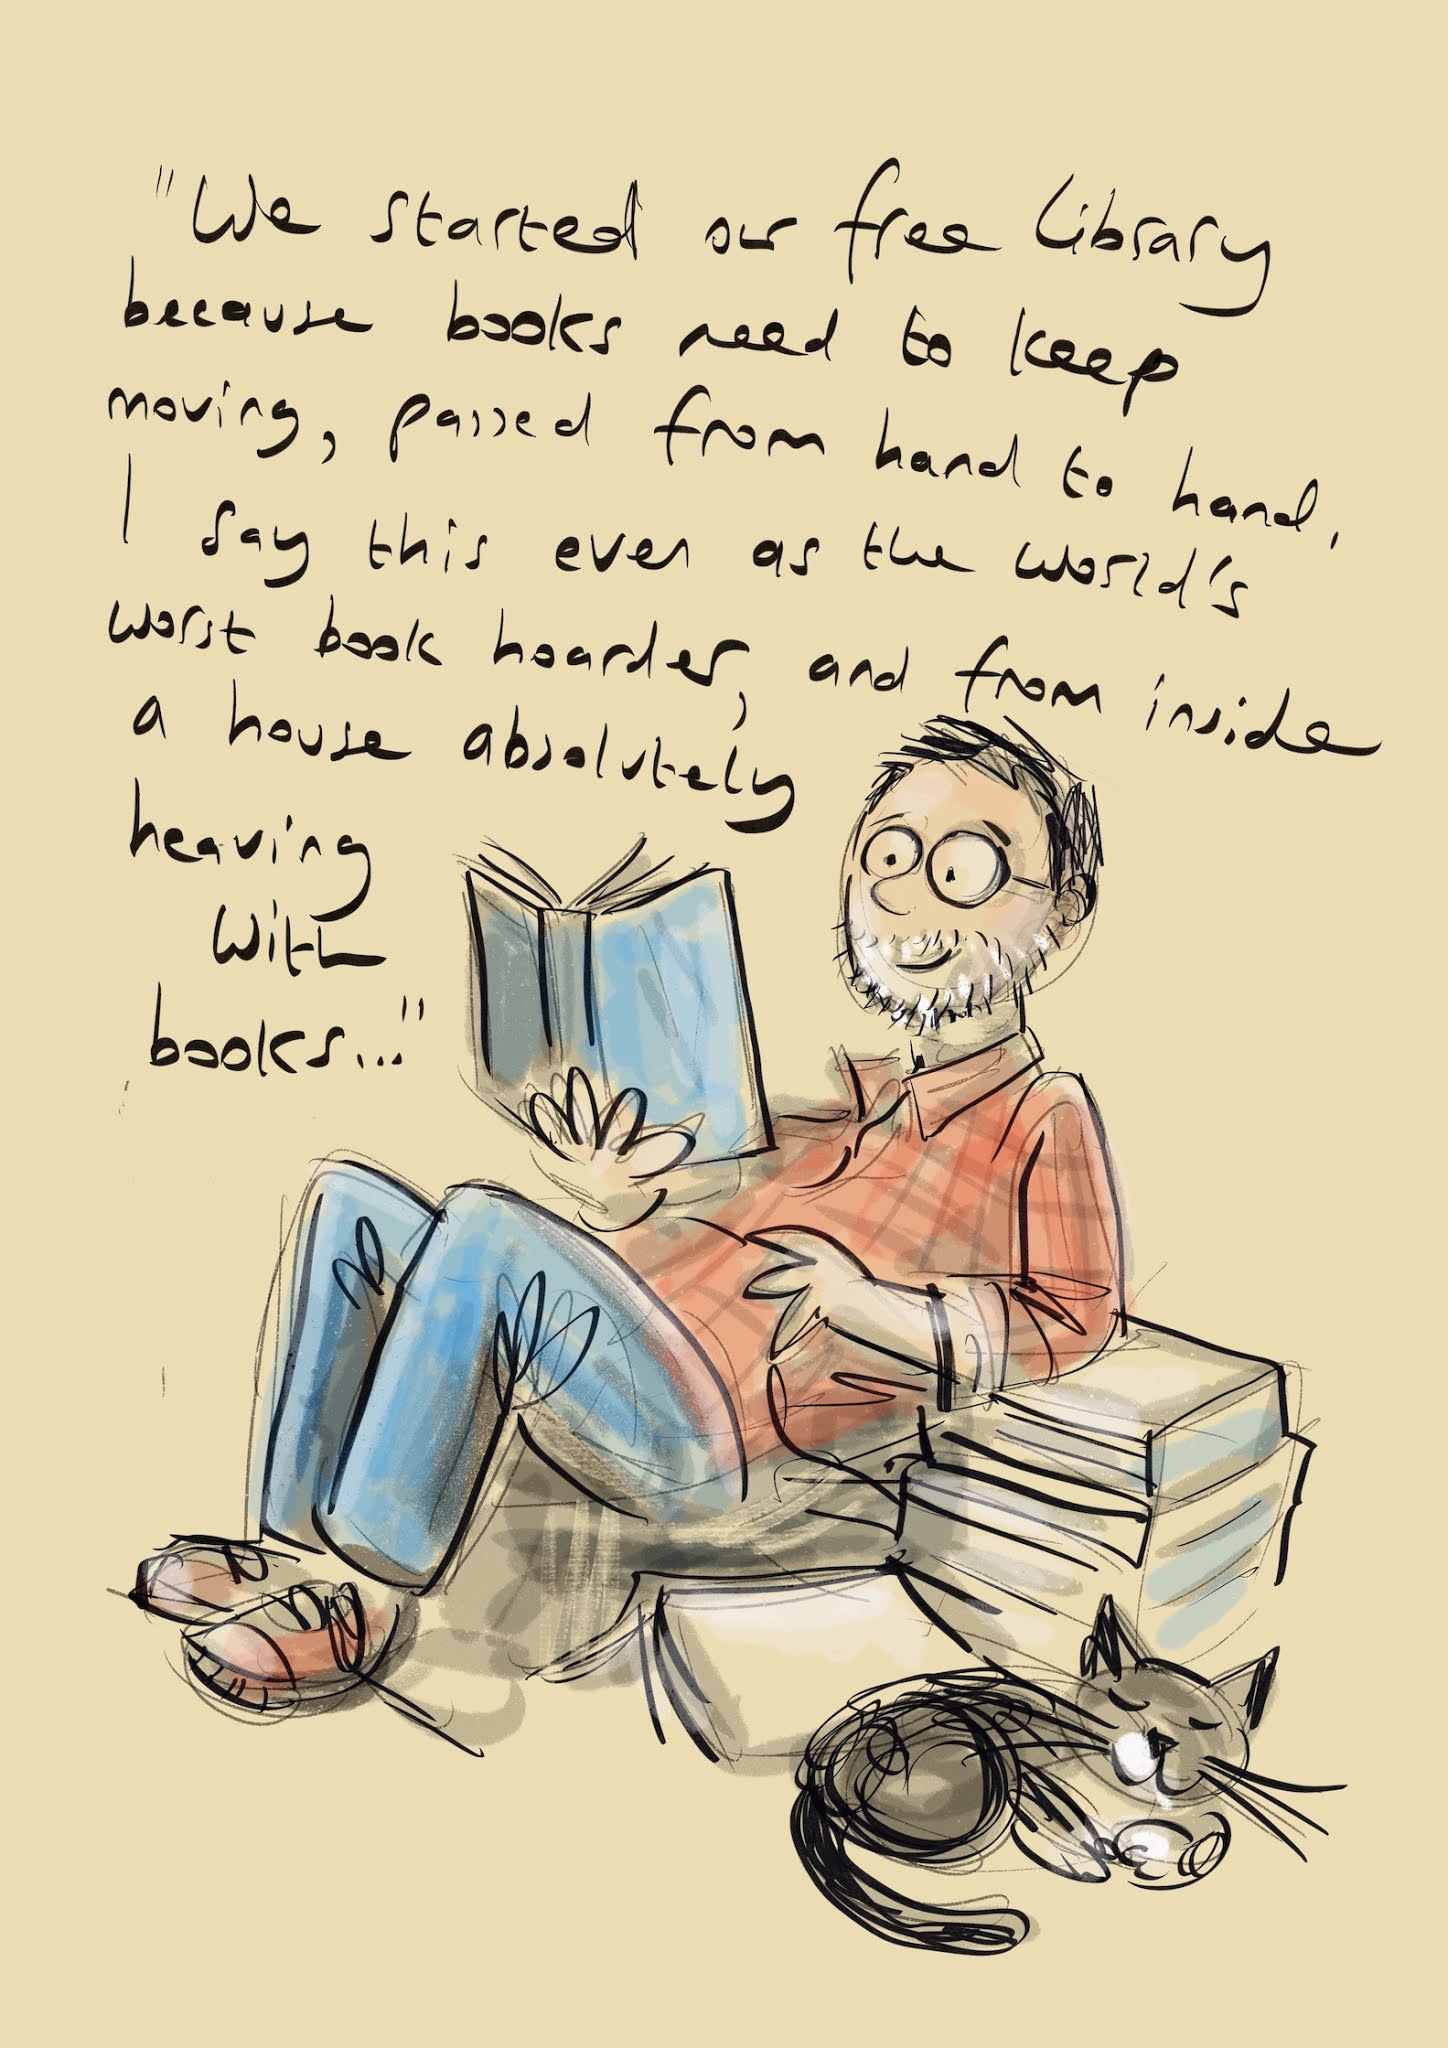 "We started our free library
because books need to keep
moving, passed from hand to hand.
I say this even as the world's
worst book hoarder, and from inside
a house absolutely
heaving
with
books..."